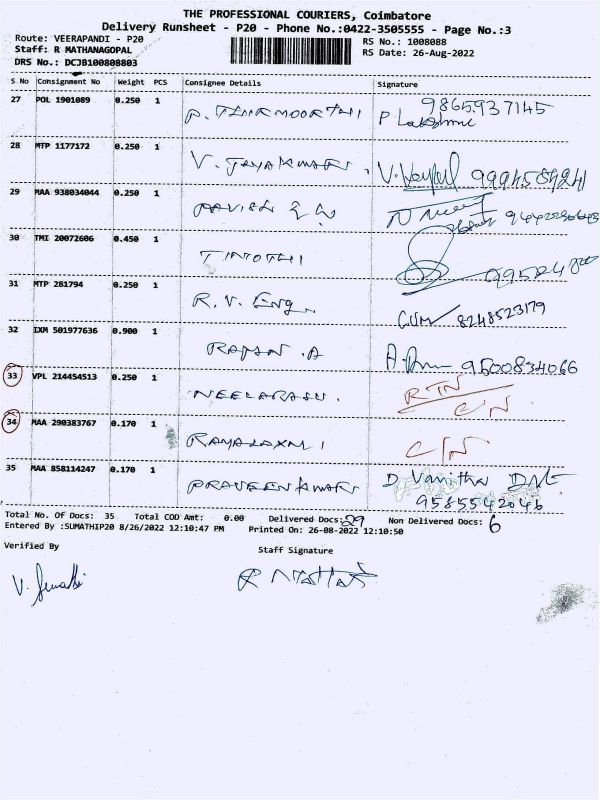 THE PROFESSIONAL COURIERS, Coimbatore
Delivery Runsheet - P20 - Phone No.:0422-3505555 - Page No.:3
Route: VEERAPANDI - P20
RS No.: 1008088
Staff: R MATHANAGOPAL
RS Date: 26-Aug-2022
DRS No.: DCJB100808803
S No Consignment No Weight PCS Consignee Details Signature
27 POL 1901089 0.250 1 P. THIRMOORTHI P Lakshmi 9865937145
28 MTP 1177172 0.250 1 V. JAYAKMARI 9994589241
29 MAA 938034044 0.250 1
30 TMI 20072606 0.450 1 TIMOTHI
31 MTP 281794 0.250 1 R.V. Eng. 8248523179
32 IXM 501977636 0.900 1 RAJAN .A 9500834066
33 VPL 214454513 0.250 1 NEELARASU. RTN C/N
34 MAA 290383767 0.170 1 RAJALAXMI C/N
35 MAA 858114247 0.170 1 PRAVEENKMARI D. Vanitha 9585542046
Total No. Of Docs: 35 Total COD Amt: 0.00 Delivered Docs: 29 Non Delivered Docs: 6
Entered By :SUMATHIP20 8/26/2022 12:10:47 PM Printed On: 26-08-2022 12:10:50
Verified By
Staff Signature